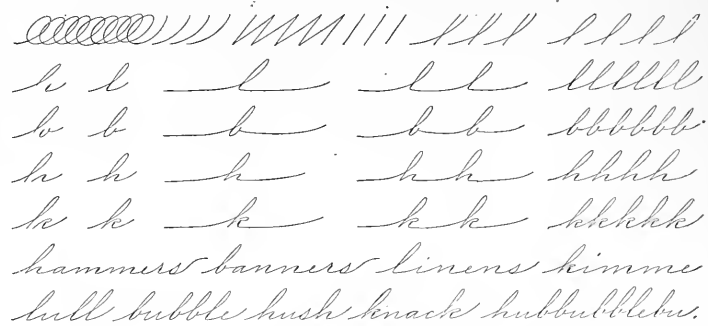 l l l l l l l
l l l l l llllll
b b b b b bbbbbb
h h h h h hhhh
k k k k k kkkkk
hammers banners linens kimme
lull bubble hush knack hubbubblebu.